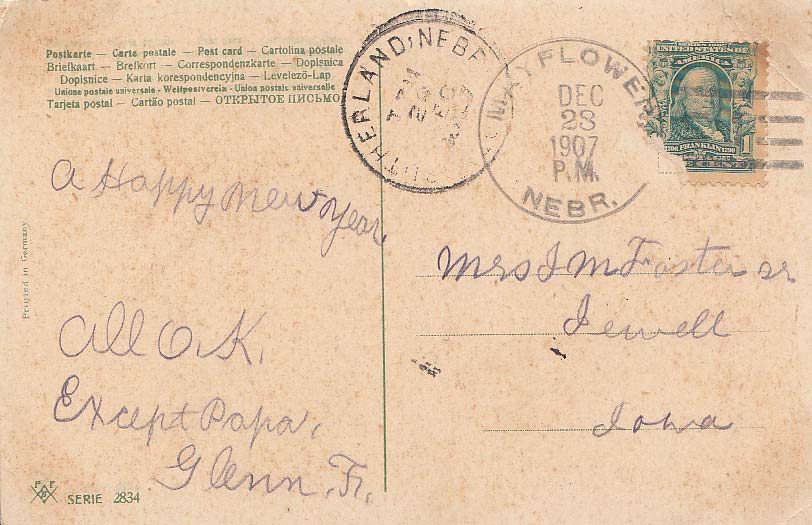 Postkarte — Carte postale — Post card — Cartolina postale
Briefkaart — Brefkort — Correspondenzkarte — Dopisnica
Dopisnice — Karta korespondencyjna — Levelező-Lap
Unione postale universale - Weltpostverein - Union postale universelle
Tarjeta postal — Cartão postal — ОТКРЫТОЕ ПИСЬМО
SUTHERLAND, NEBR
MAYFLOWER
DEC
28
1907
P.M.
NEBR.
UNITED STATES OF
AMERICA
FRANKLIN 1790
1
A Happy New Year
All O.K.
Except Papa,
Glenn. Fr.
Mrs J M Foster sr
Jewell
Iowa
Printed in Germany
PFB
SERIE 2834